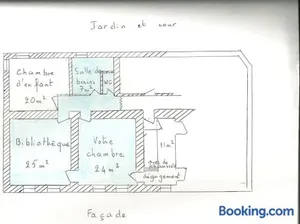 Jardin et cour
Chambre
d'enfant
20 m²
Salle de
bains
7 m²
WC
Bibliothèque
25 m²
Votre
chambre
24 m²
11 m²
dégagement
Façade
Booking.com